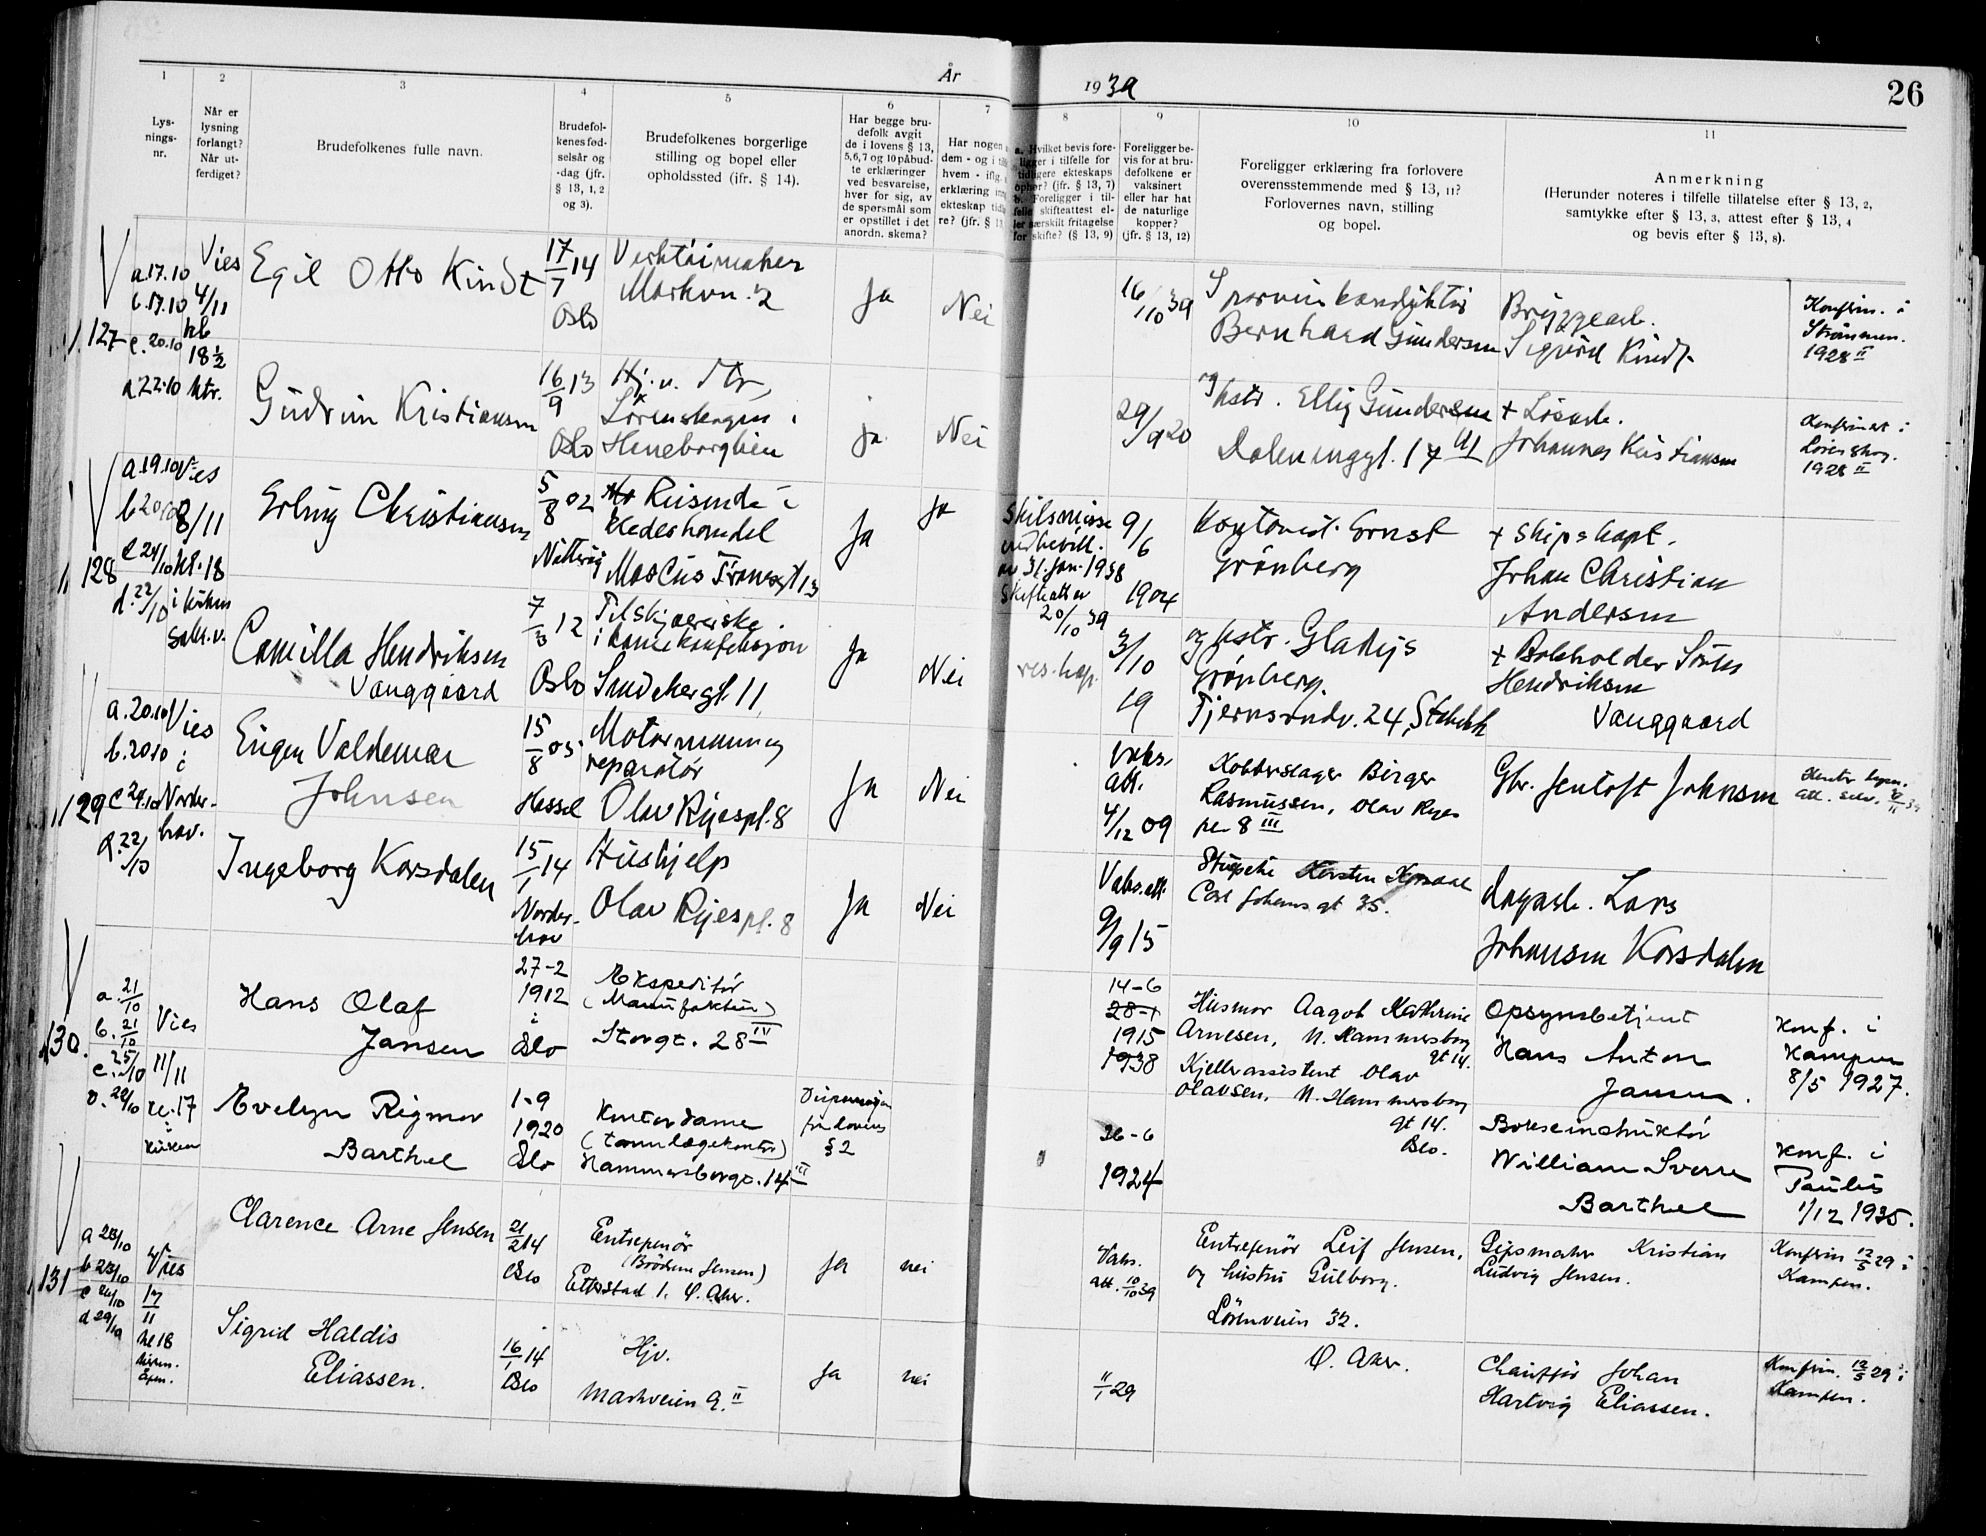 År 1939
26
1 2 3 4 5 6 7 8 9 10 11
Lys-
nings-
nr.
Når er
lysning
forlangt?
Når ut-
ferdiget?
Brudefolkenes fulle navn.
Brudefol-
kenes fød-
selsår og
-dag (jfr.
§ 13, 1, 2
og 3).
Brudefolkenes borgerlige
stilling og bopel eller
opholdssted (jfr. § 14).
Har begge bru-
defolk avgit
de i lovens § 13,
5, 6, 7 og 10 påbud-
te erklæringer
ved besvarelse,
hver for sig, av
de spørsmål som
er opstillet i det
anordn. skema?
Har nogen
dem - og i
hvem - iflg.
erklæring
ekteskap
re? (jfr. § 13
a. Hvilket bevis fore-
ligger i tilfelle for
tidligere ekteskaps
ophør? (jfr. § 13, 7)
b. Foreligger i til-
felle skifteattest el-
ler særskilt fritagelse
for skifte? (§ 13, 9)
Foreligger be-
vis for at bru-
defolkene er
vaksinert
eller har hat
de naturlige
kopper?
(jfr. § 13, 12)
Foreligger erklæring fra forlovere
overensstemmende med § 13, 11?
Forlovernes navn, stilling
og bopel.
Anmerkning
(Herunder noteres i tilfelle tillatelse efter § 13, 2,
samtykke efter § 13, 3, attest efter § 13, 4
og bevis efter § 13, 8).
127
a.17.10
b.17.10
c.20.10
d.22.10
Vies
4/11
kl
18½
Egil Otto Kindt
17/7 14
Oslo
Verktøimaker
Markvn. 2
Ja
Nei
16/10 39
Sporveiskonduktør
Bernhard Gundersen
Bryggearb.
Sigurd Kindt
Konfirm. i
Strømmen.
1928 II
Gudrun Kristiansen
16/9 13
Oslo
Hj. v.
Lørenskogen i
Ja
Nei
29/9 20
og hstr. Elly Gundersen
Dalenenggt. 17 III
+ Løsarb.
Johannes Kristiansen
Konfirmert i
Lørenskog.
1928 II
128
a.19.10
b 20.10
c 24/10
d. 22/10
Vies
8/11
kl. 18
i kirken
Erling Christiansen
5/8 02
Reisende i
kledeshandel
Marcus Tranesgt 13
Ja
Ja
Skilsmisse
ved bevill.
av 31. jan. 1938
Skifteatt av
20/10 39
9/6
1904
Kontorist Ernst
Grønberg
+ Skipskapt.
Johan Christian
Andersen
Camilla Hendriksen
Vanggaard
7/3 12
Oslo
Tilskjærerske
i damekonfeksjon
Ja
Nei
3/10
19
og hstr. Gladys
Grønberg.
Tjernsrudv. 24, Stabekk
+ Bokholder Søren
Hendriksen
Vanggaard
129
a. 20.10
b. 20.10
c 24.10
d. 22/10
Vies
i
Norder-
hov.
Eugen Valdemar
Johnsen
15/8 05
Motormann og
reparatør
Olav Ryespl. 8
Ja
Nei
Vaks.
att.
4/12 09
Kobberslager Birger
Rasmussen, Olav Ryes
pl. 8 III
Gbr. Jentoft Johnsen
Ingeborg Korsdalen
15/1 14
Norder-
hov
Hushjelp
Olav Ryespl. 8
Ja
Nei
Vaks.att.
9/9 15
Carl Johans gt 35.
Dagarb. Lars
Johansen Korsdalen
130.
a. 21/10
b. 21/10
c. 25/10
d. 22/10
Vies
11/11
kl. 17
i
kirken
Hans Olaf
Jansen
27-2
1912
i
Oslo
Ekspeditør
(Manufaktur)
Storgt. 28 IV
14-6
28-1
1915
1938
Husmor Aagot Kathrine
Arnesen, N. Hammersborg
gt 14.
Kjellerassistent Olav
Olavsen, N. Hammersborg
gt 14.
Oslo.
Opsynsbetjent
Hans Anton
Jansen.
Konf. i
Kampen
8/5 1927.
Evelyn Rigmor
Barthel
1-9
1920
Oslo
Kontordame
(tannlægekontor)
Hammersborggt. 14 III
Dispensasjon
fra lovens
§ 2
26-6
1924
Bokseinstruktør
William Sverre
Barthel
Konf. i
Paulus
1/12 1935.
131
a 23/10
b 23/10
c 26/10
d 29/10
Vies
17/11
kl 18
Clarence Arne Jensen
21/2 14
Oslo
Entrepenør
(Brødrene Jensen)
Ja
nei
Vaks.
att. 10/10 39
Entrepenør Leif Jensen,
og hustru Gulborg.
Lørenveien 32.
Ø. Aker.
Gipsmaker Kristian
Ludvig Jensen.
Konfirm 12/5 29 i
Kampen.
Sigrid Haldis
Eliassen.
16/1 14
Oslo
Hjv.
Markveien 9. II
Ja
nei
11/1 29
Chauffør Johan
Hartvig Eliassen.
Konfirm. 12/5 29 i
Kampen.